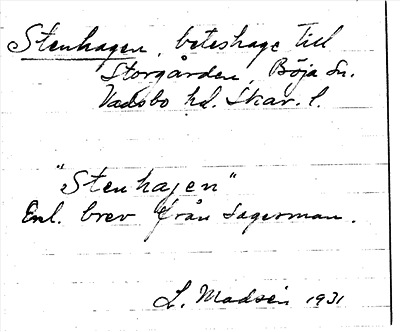 Stenhagen, beteshage till
Storgården, Böja sn.
Vadsbo hd. Skar. l.
"Stenhajen"
Enl. brev från Sagerman.
L. Madsén 1931